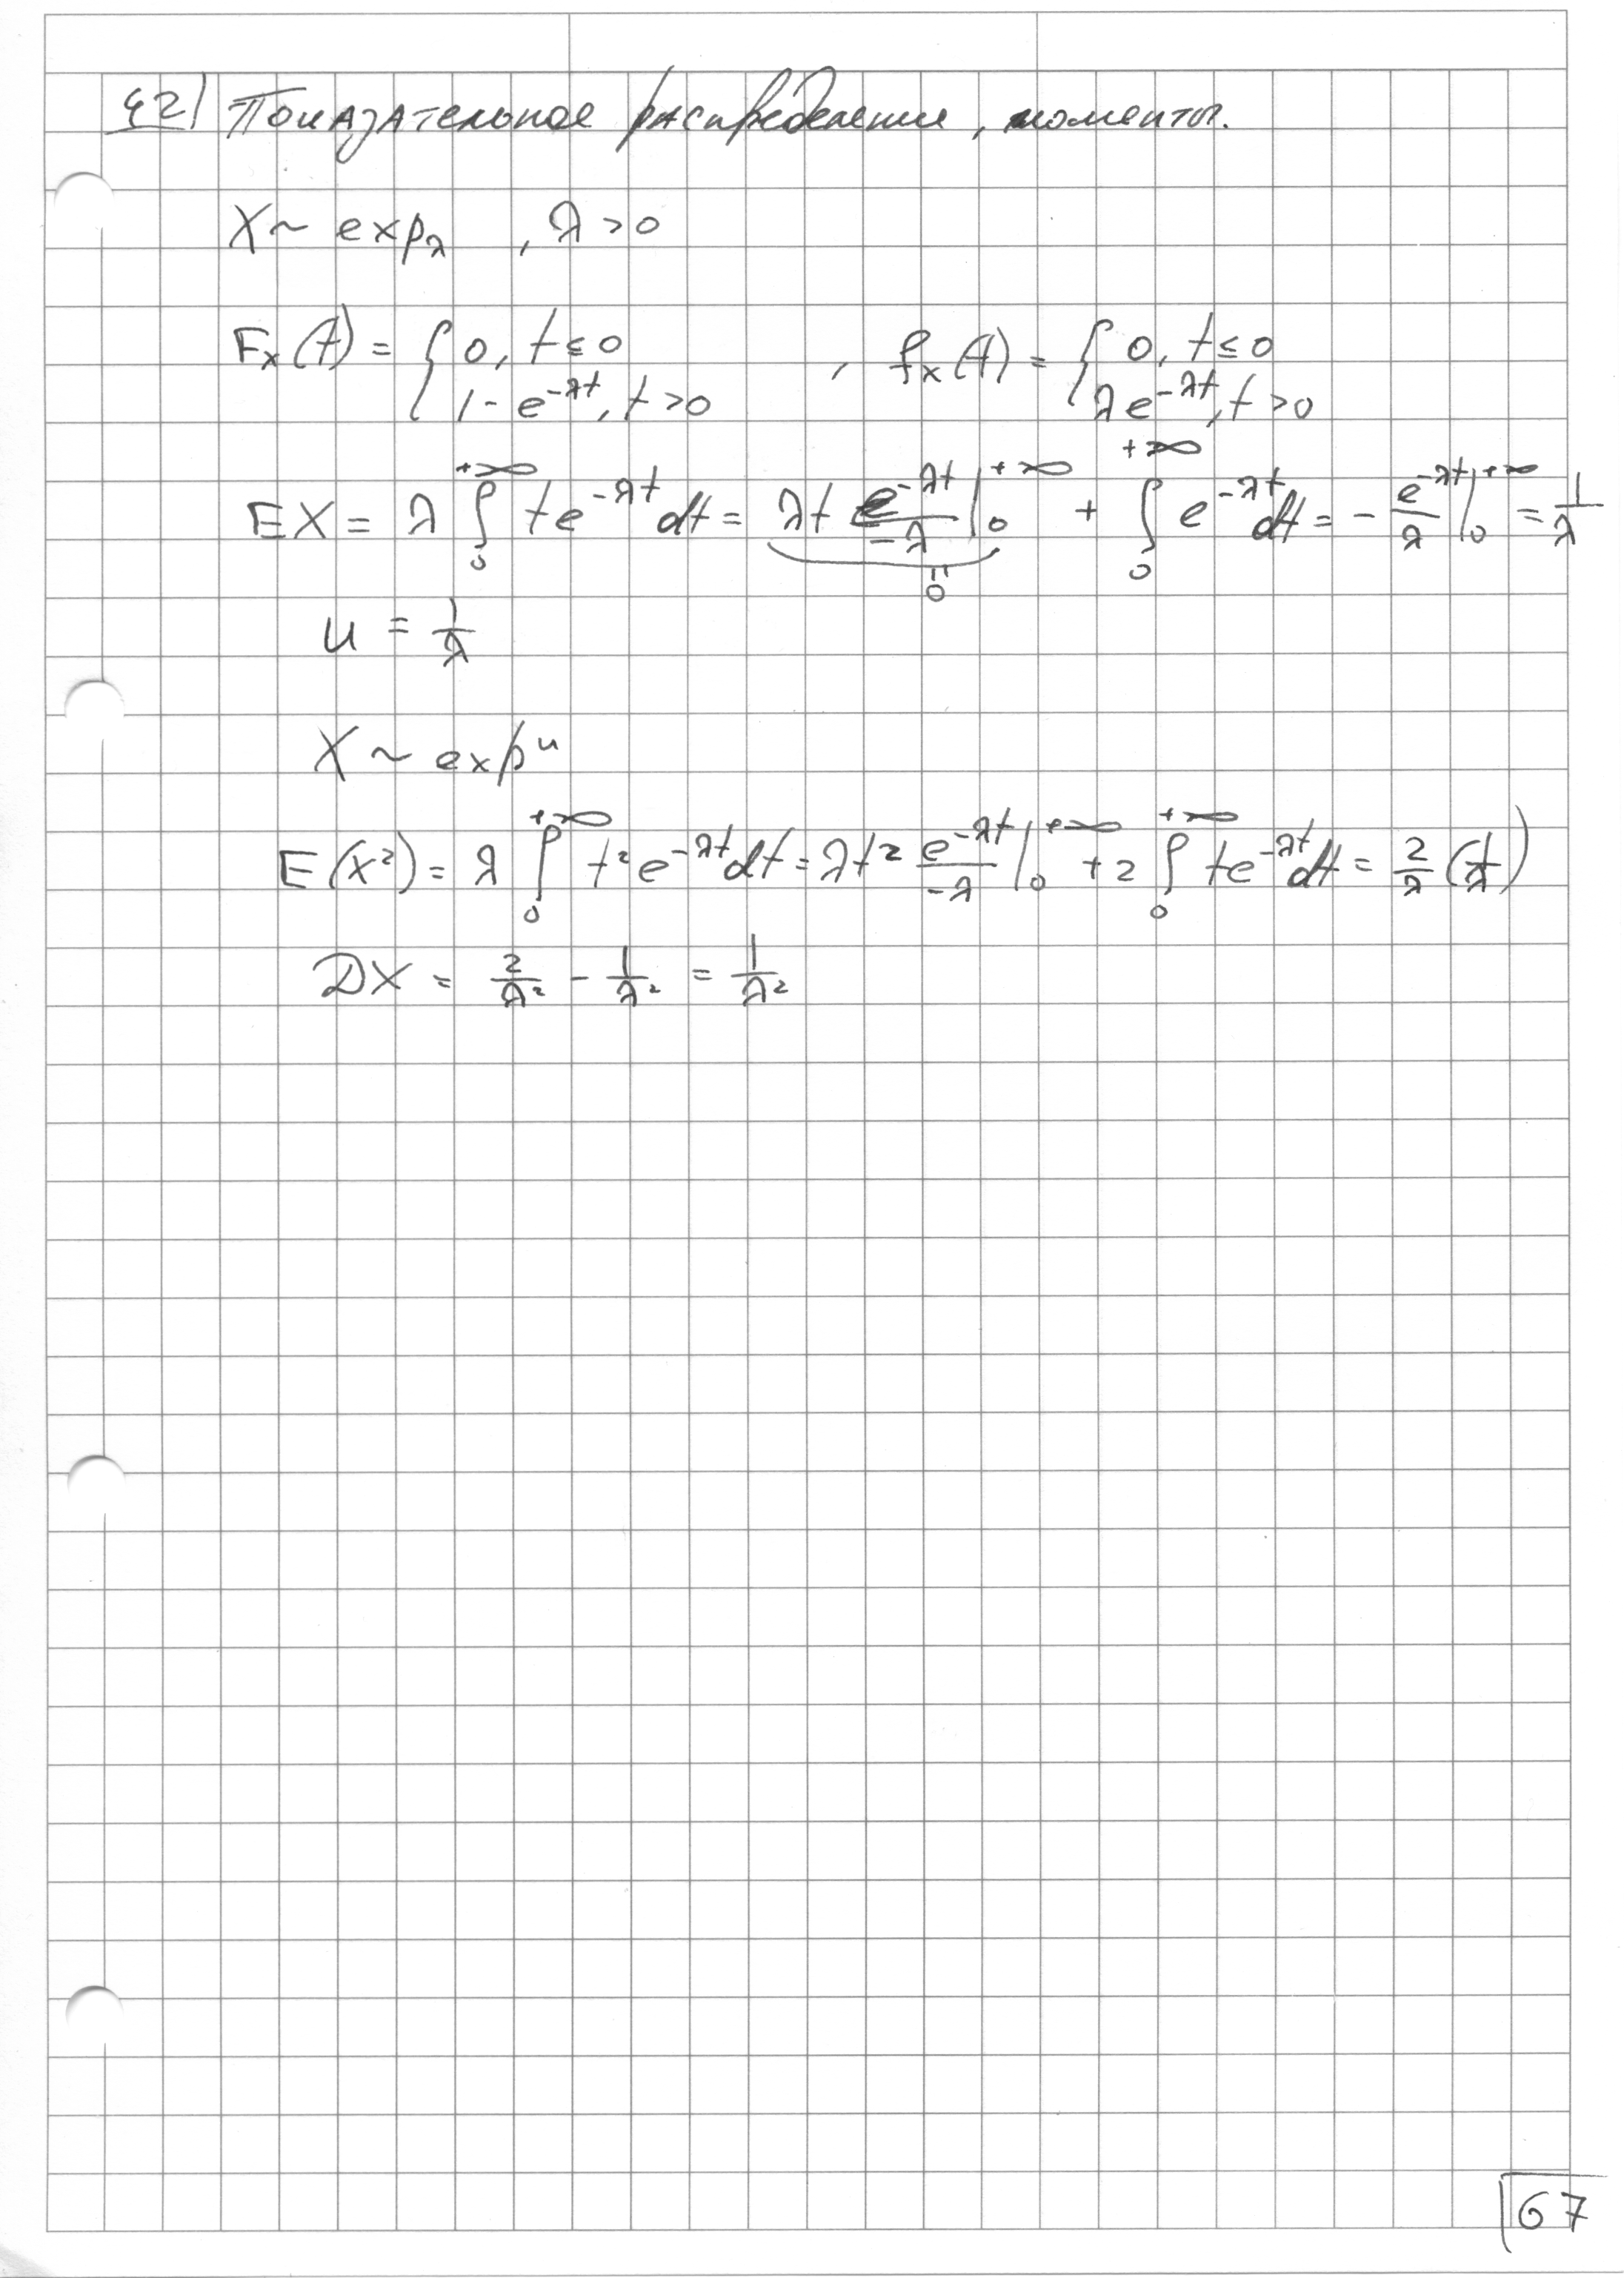 42) Показательное распределение, моменты.
X ~ exp_λ , λ > 0
F_x(t) = { 0, t ≤ 0 ; 1 - e^{-λt}, t > 0 , f_x(t) = { 0, t ≤ 0 ; λe^{-λt}, t > 0
EX = λ ∫_0^{+∞} te^{-λt} dt = λt e^{-λt}/-λ |_0^{+∞} + ∫_0^{+∞} e^{-λt} dt = - e^{-λt}/λ |_0^{+∞} = 1/λ
"0
u = 1/λ
X ~ exp^u
E(X²) = λ ∫_0^{+∞} t² e^{-λt} dt = λt² e^{-λt}/-λ |_0^{+∞} + 2 ∫_0^{+∞} te^{-λt} dt = 2/λ (1/λ)
DX = 2/λ² - 1/λ² = 1/λ²
67